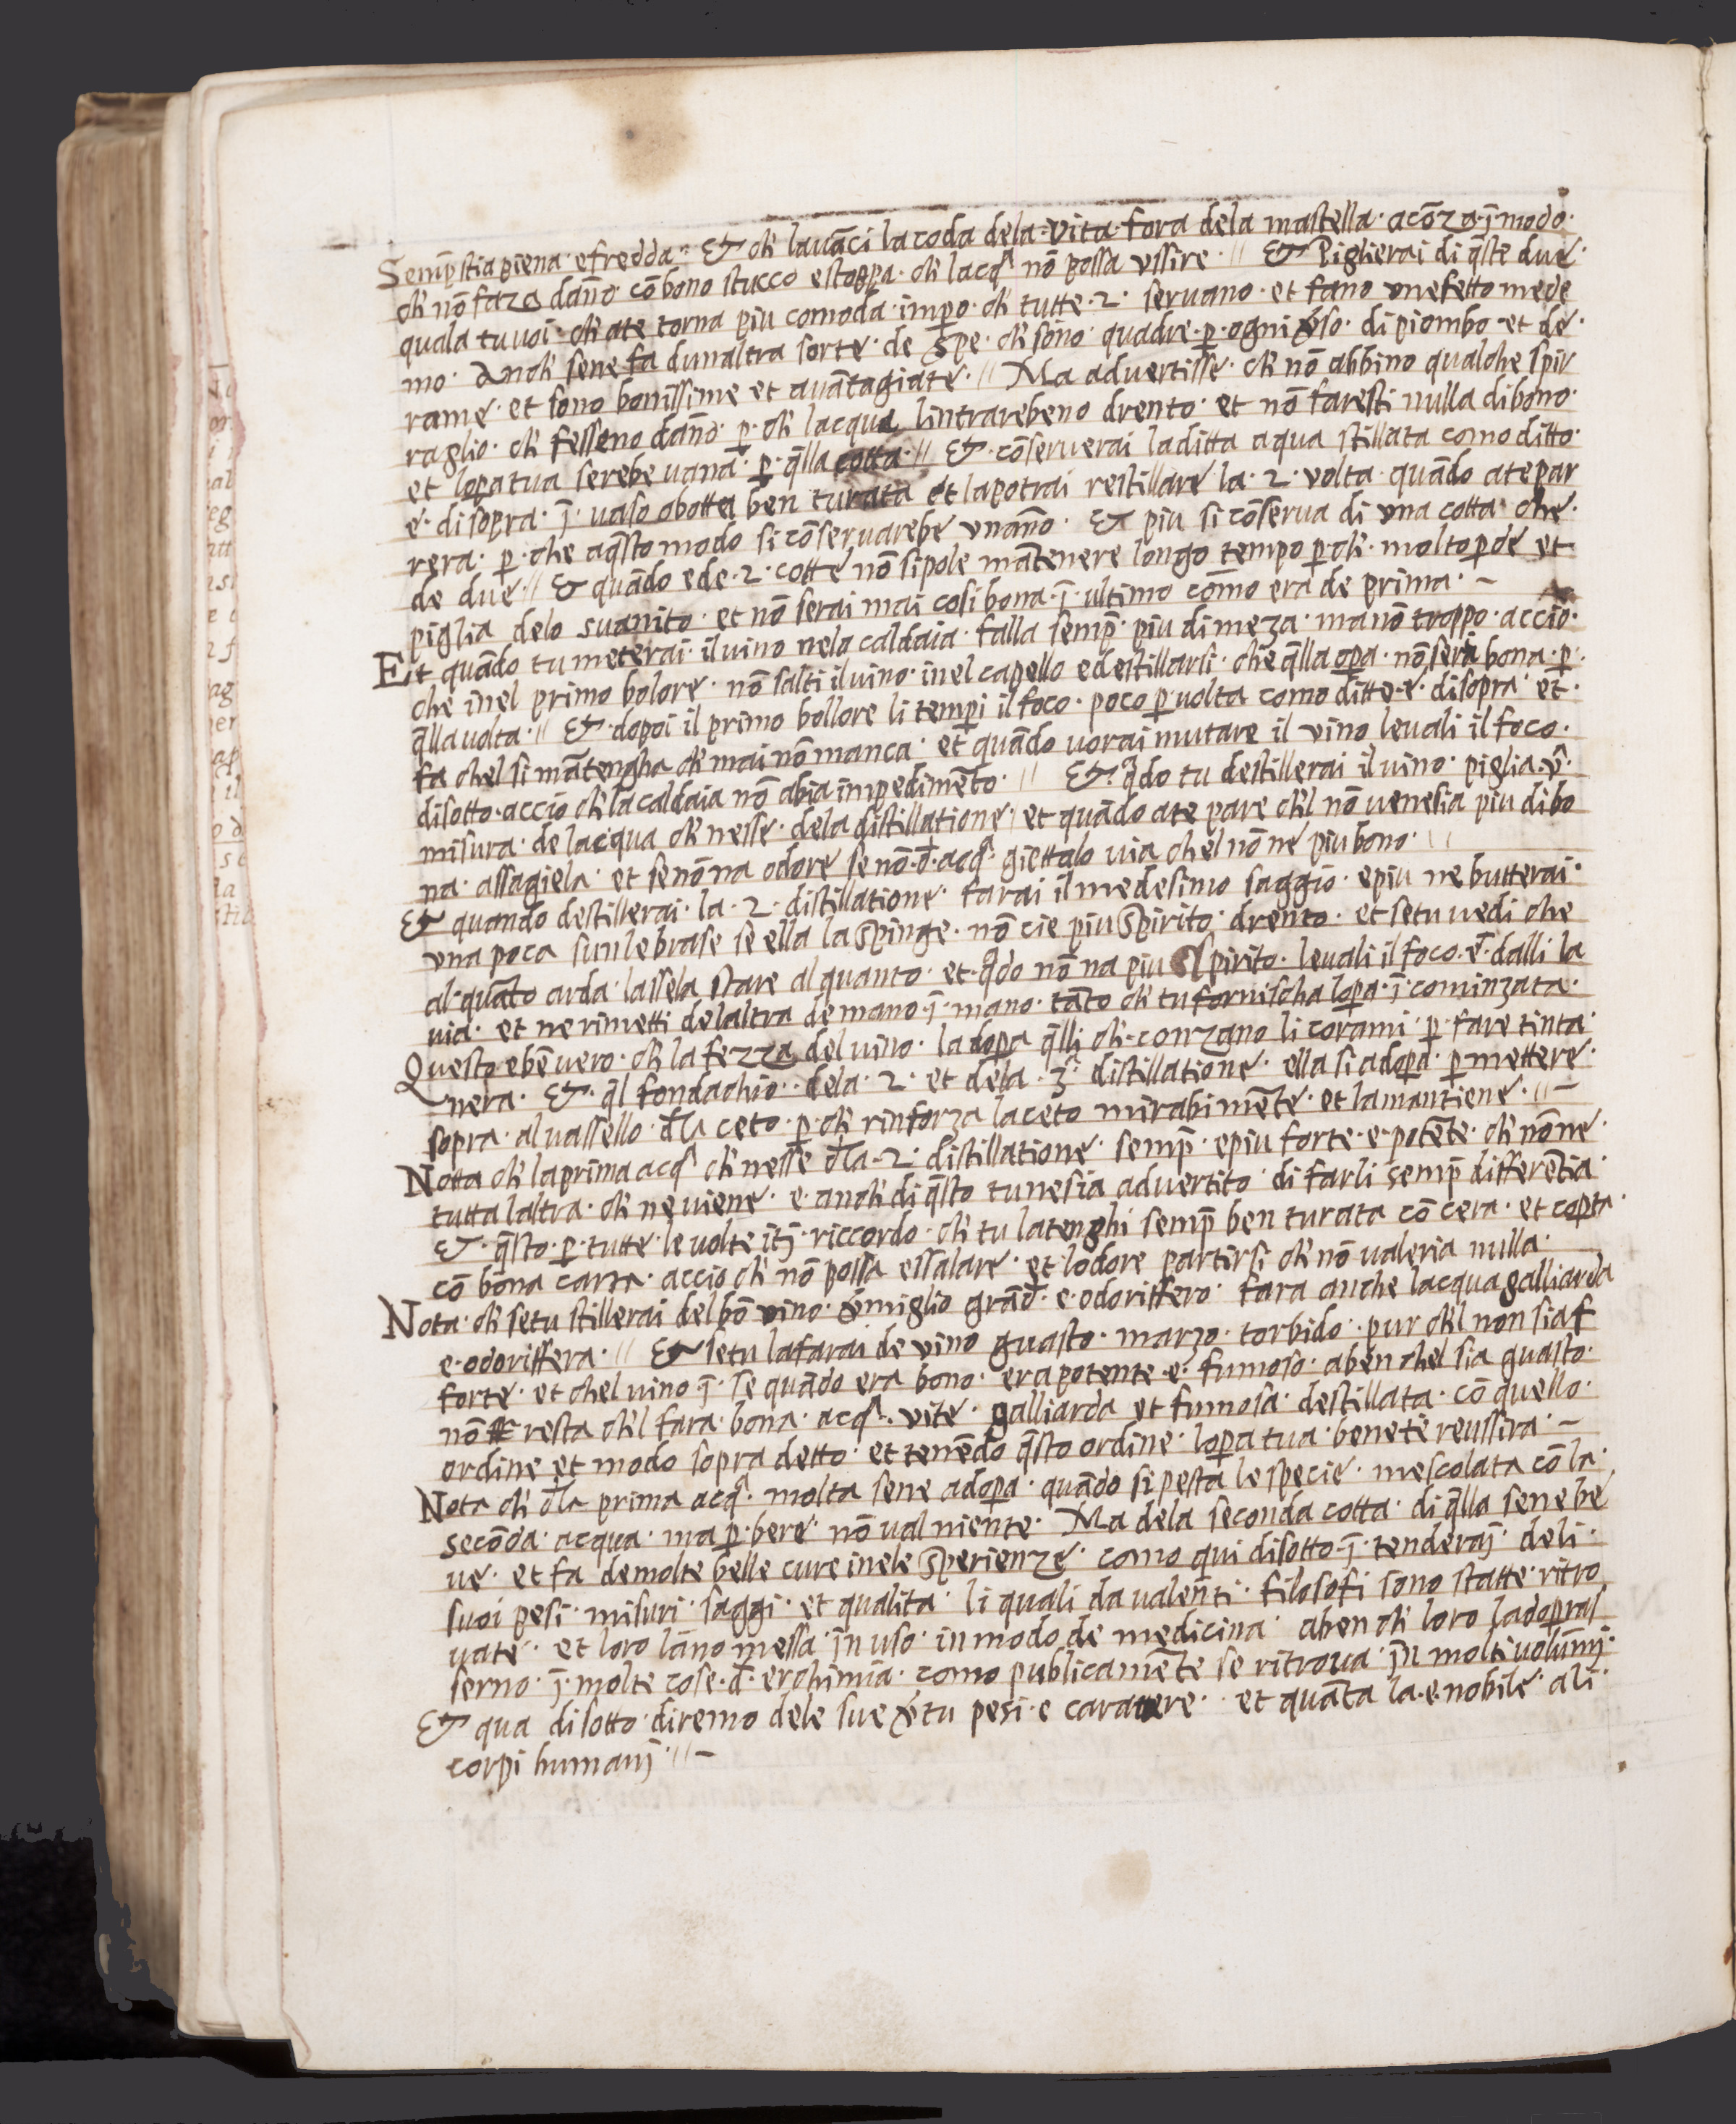 Semp̄ stia piena · e fredda · & ch' lauāci la coda dela · vita · fora dela mastella · acōzo · ī modo ·
ch' nō faza dāno · cō bono stucco e stoppa · ch' lacqᵃ nō possa vssire · // & Piglierai di q̄ste due ·
quala tu uoi · ch' a te torna piu comoda · imp̱o · ch' tutte · 2 · seruano · et fano vnefetto mede
mo · Anch' se ne fa dunaltra sorte · de sp̱e · ch' sōno quadre · p̱ · ogni v̄so · di piombo · et de ·
rame · et sono bonissime et auātagiate · // Ma advertisse · ch' nō abbino qualche spir
raglio · ch' fesseno dāno · p̱ · ch' lacqua lintrarebeno drento · et nō faresti nulla di bono ·
et lop̱a tua serebe uana · p̱ · q̄lla cotta · // & · cōseruerai la ditta aqua stillata como ditto ·
e · di sopra · ī · uaso o botta ben turata et la potrai restillare la · 2 · volta · quādo a te par
rera · p̱ · che a q̄sto modo si cōseruarebe vnāno · & piu si cōserua di vna cotta · che ·
de due · // & quādo e de · 2 · cotte nō si pole mātenere longo tempo p̱ ch' · molto p̱de et
piglia delo suanito · et nō serai mai cosi bona · ī · ultimo cōmo era de prima · ~
Et quādo tu meterai · il uino nela caldaia · falla semp̄ · piu di meza · ma nō troppo · accio ·
che inel primo bolore · nō salti il uino · inel capello e destillarsi · che q̄lla op̱a · nō sera bona · p̱ ·
q̄lla uolta · // & · dopoi il primo bollore li tempi il foco · poco p̱ uolta como ditto · e · di sopra · et ·
fa chel si mātengha ch' mai nō manca · et quādo uorai mutare il vino leuali il foco ·
disotto · accio ch' la caldaia nō abia impedimēto · // & · q̄do tu destillerai il uino · piglia · v̄ ·
misura · de lacqua ch' nesse · dela distillatione · et quādo a te pare ch'l nō uenesia piu di bo
na · assagiela · et se nō na odore se nō · d̄ · acqᵃ · giettalo via chel nō ne piu bono · //
& quando destillerai · la · 2 · distillatione · farai il medesimo saggio · e piu ne butterai ·
vna poca sun le brase se ella la spinge · nō cie piu spirito · drento · et se tu uedi che
al · quāto arda · lassela stare alquanto · et · q̄do nō na piu spirito · leuali il foco · e · dalli la
uia · et ne rimetti delaltra de mano · ī · mano · tāto ch' tu fornischa lop̱a · ī · cominzata ·
Questo e bē vero · ch' la fezza del uino · ladop̱a q̄lli ch' · conzano li corami · p̱ · fare tinta ·
nera · & · q̄l fondachio · dela · 2 · et dela · 3ᵃ distillatione · ella si adop̱a · p̱ mettere ·
sopra · al uassello · d̄la ceto · p̱ · ch' rinforza laceto mirabimēte · et la mantiene · // ~
Notta ch' la prima acqᵃ ch' nesse d̄la · 2 · distillatione · semp̄ · e piu forte · e · potēte · ch' nō ne ·
tutta laltra · ch' ne uiene · e · anch' di q̄sto tu ne sia advertito · di farli semp̄ differētia ·
& · q̄sto · p̱ · tutte · le uolte itj̄ · riccordo · ch' tu la tenghi semp̄ ben turata cō cera · et cop̱ta ·
cō bona carta · accio ch' nō possa essalare · et lodore partirsi ch' nō ualeria nulla ·
Nota · ch' se tu stillerai del bō vino · v̄miglio grād̄ · e · odoriffero · fara anche lacqua galliarda
e · odoriffera · // & se tu la farai de vino guasto · marzo · torbido · pur ch'l non sia f
forte · et chel uino · ī · se quādo era bono · era potente · e · fumoso · aben chel sia guasto ·
nō resta ch'l fara · bona · acqᵃ · vite · galliarda et fumosa · destillata · cō quello ·
ordine et modo sopra detto · et tenēdo q̄sto ordine · lop̱a tua · bene te reussira · ~
Nota ch' d̄la prima acqᵃ · molta sene adop̱a · quādo si pesta le specie · mescolata cō la ·
secōda · acqua · ma p̱ · bere · nō ual niente · Ma dela seconda cotta · di q̄lla sene be
ue · et fa de molte belle cure inele sperienze · como qui disotto · ī · tenderaj · deli ·
suoi pesi · misuri · saggi · et qualita · li quali da ualenti · filosofi sono statte · ritro
uate · et loro lāno messa in uso · in modo de medicina · aben ch' loro ladopras
serno · ī · molte cose · d̄ · erchimia · como publicamēte se ritroua · in molti uolumj ·
& qua di sotto diremo dele sue v̄tu pesi · e caratere · et quāta la · e · nobile · ali ·
corpi humanj · // ~